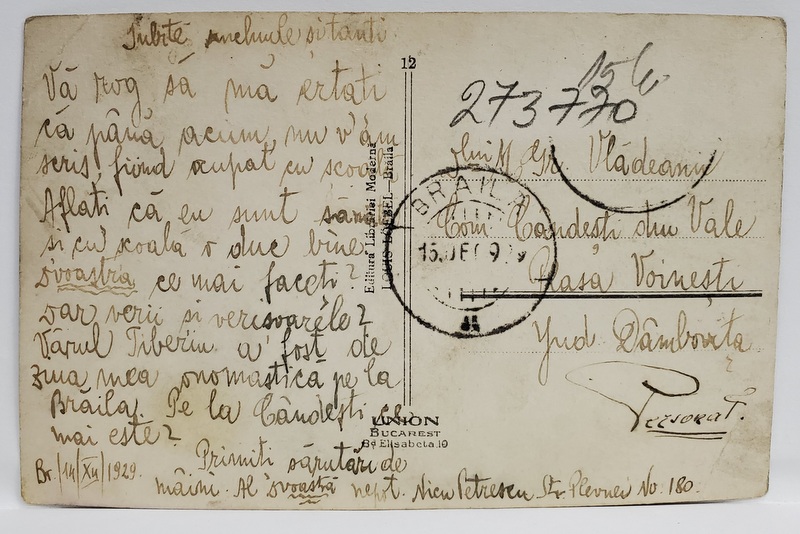 Iubite unchiule și tanti
Vă rog să mă ertati
că până acum, nu v'am
scris, fiind ocupat cu scoala
Aflati că eu sunt sănăt
si cu scoală o duc bine
D'voastră ce mai faceți?
dar verii si verisoarele?
Vărul Tiberiu a fost de
ziua mea onomastica pe la
Brăila. Pe la Cândești ce
mai este?
Primiti sărutări de
Br. |14|XII|1929.
mâini. Al D'voastră nepot. Nicu Petrescu Str. Plevnei No. 180.
12
Editura Librăriei Moderne
LOUIS LOEBEL—Brăila
UNION
BUCAREST
Bd Elisabeta.10
273770
BRAILA
15.DEC 929
Gr. Vlădeanu
Com Candesti din Vale
Plasa Voinești
Jud Dâmbovița
Personal.